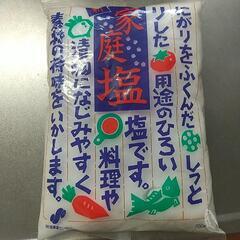 家庭塩
にがりをふくんだ
しっとりした
用途のひろい
塩です。
料理や
漬物になじみやすく
素材の持味をいかします。